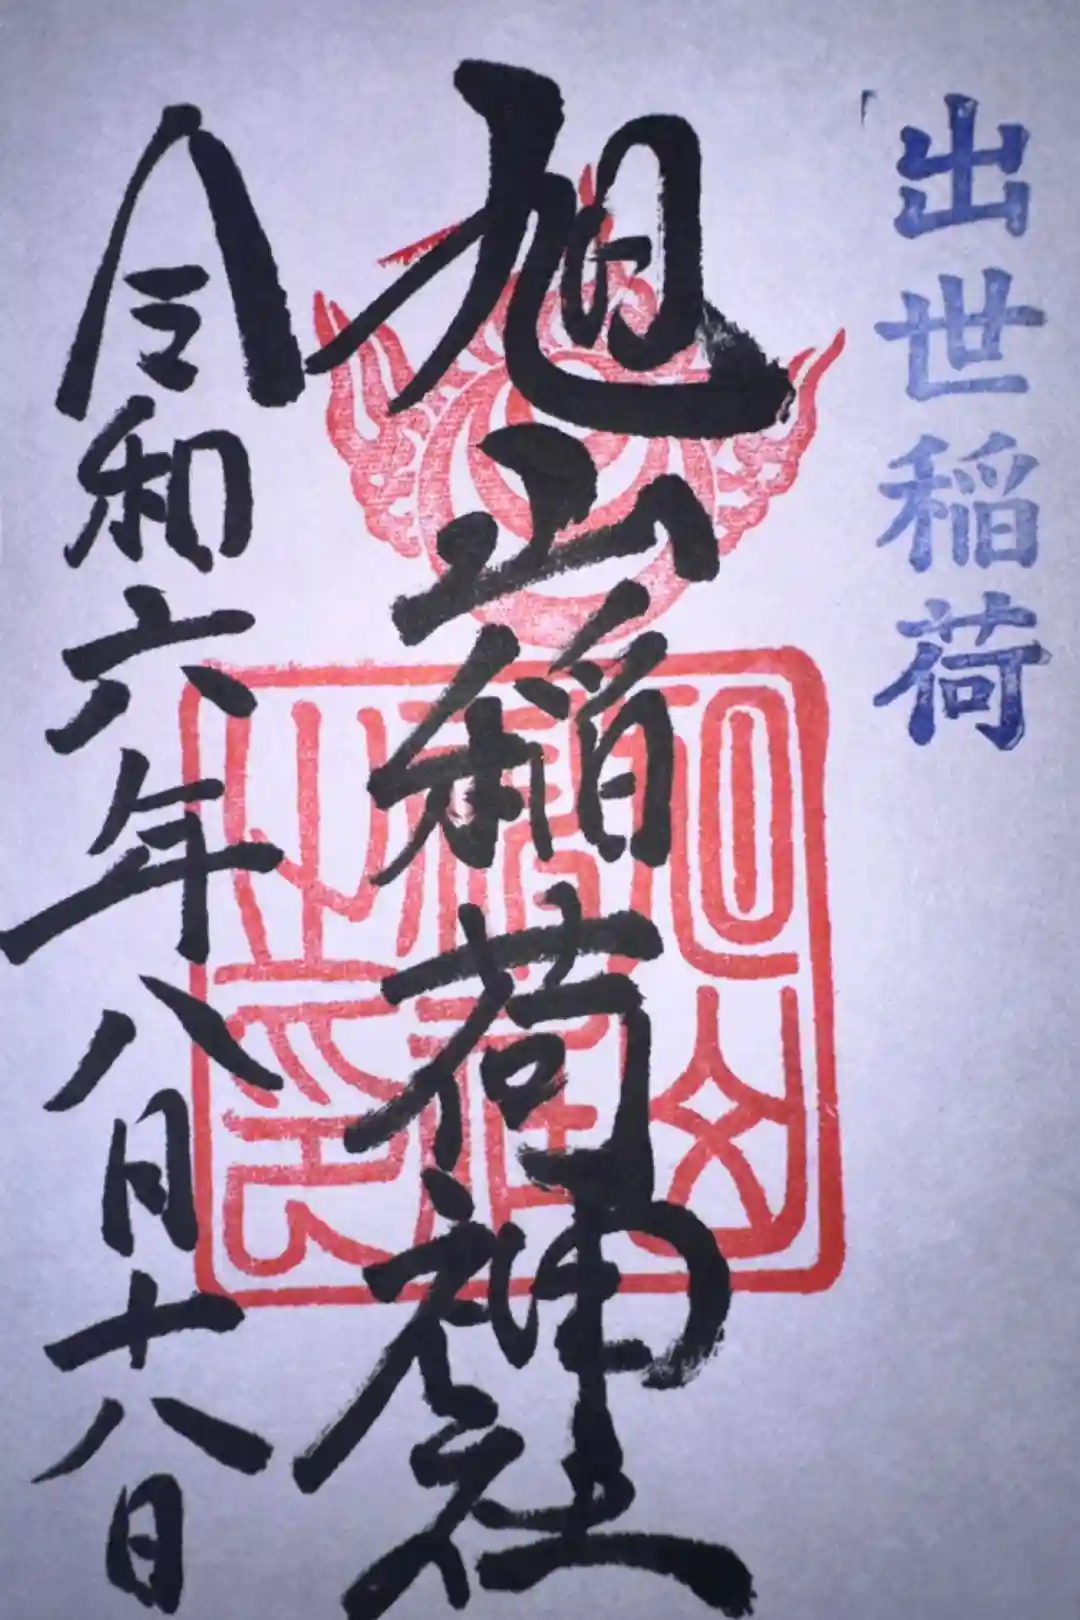 出世稲荷
旭山稲荷神社
令和六年八月十八日
旭山
稲荷
之印